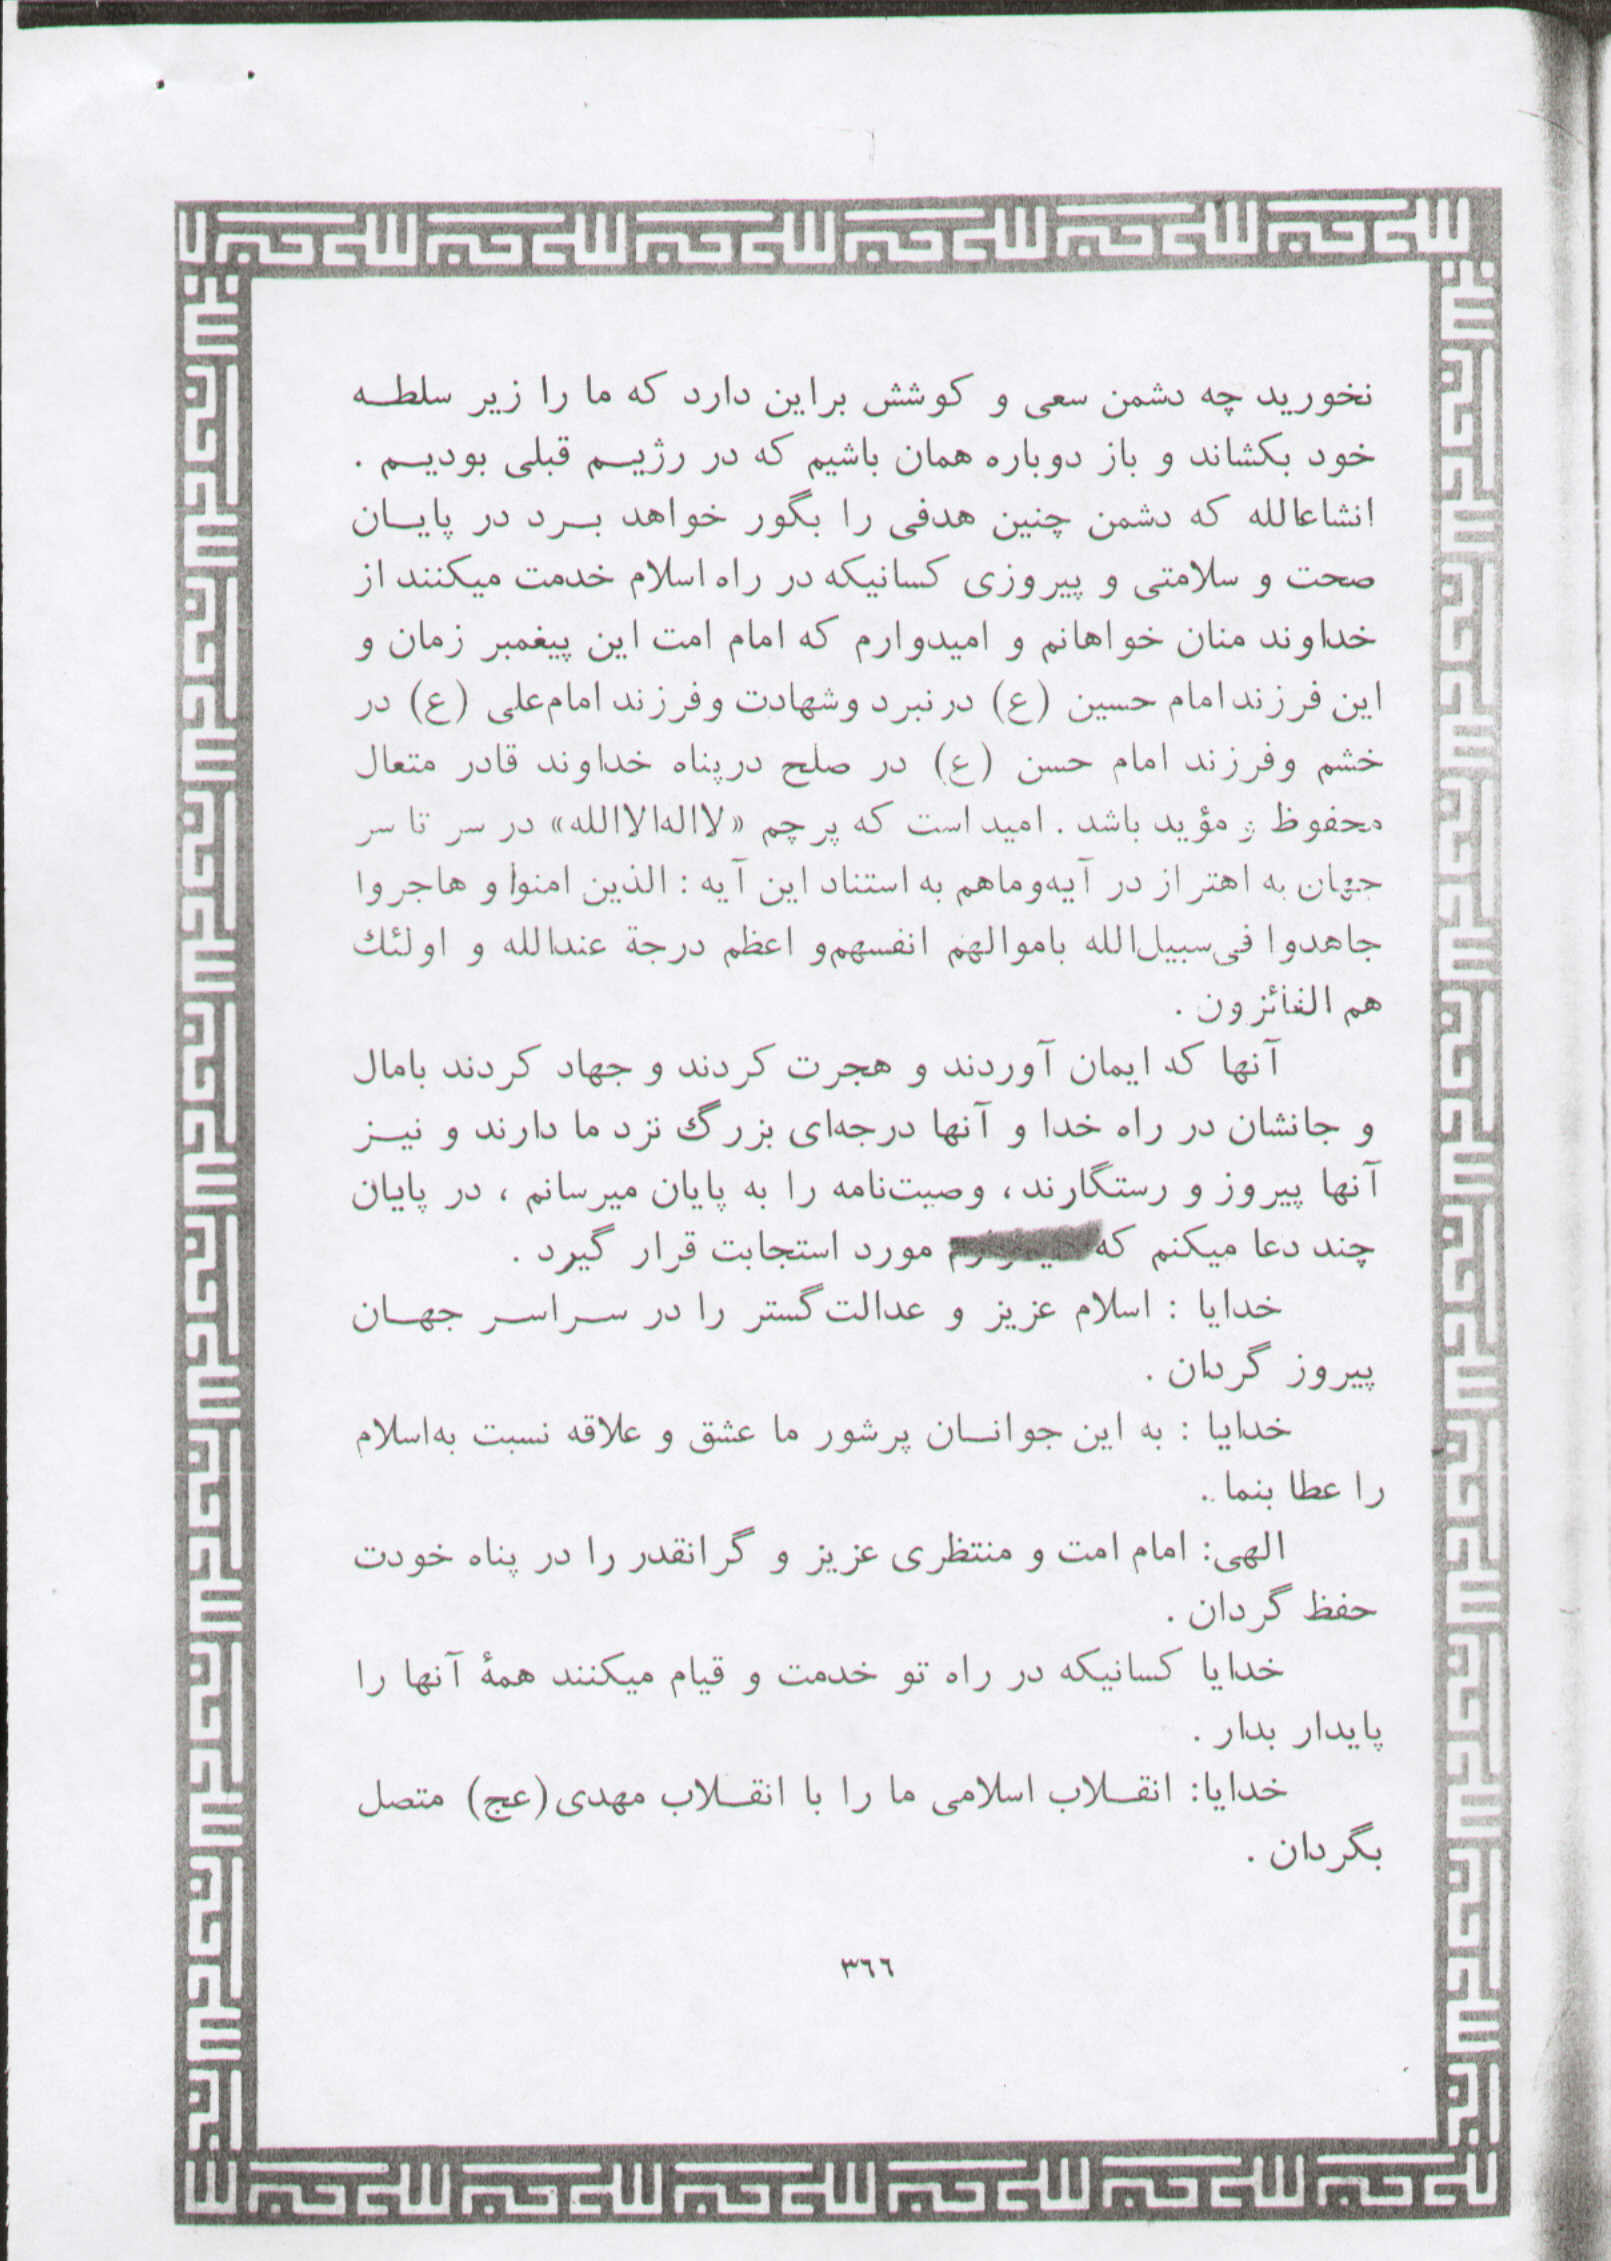 نخورید چه دشمن سعی و کوشش براین دارد که ما را زیر سلطه
خود بکشاند و باز دوباره همان باشیم که در رژیم قبلی بودیم .
انشاءالله که دشمن چنین هدفی را بگور خواهد برد در پایان
صحت و سلامتی و پیروزی کسانیکه در راه اسلام خدمت میکنند از
خداوند منان خواهانم و امیدوارم که امام امت این پیغمبر زمان و
این فرزند امام حسین (ع) درنبرد وشهادت وفرزند امام‌علی (ع) در
خشم وفرزند امام حسن (ع) در صلح درپناه خداوند قادر متعال
محفوظ و مؤید باشد . امید است که پرچم «لااله‌الاالله» در سر تا سر
جهان به اهتراز در آیه‌وماهم به استناد این آیه : الذین امنوا و هاجروا
جاهدوا فی‌سبیل‌الله باموالهم انفسهم‌و اعظم درجة عندالله و اولئك
هم الفائزون .
آنها که ایمان آوردند و هجرت کردند و جهاد کردند بامال
و جانشان در راه خدا و آنها درجه‌ای بزرگ نزد ما دارند و نیز
آنها پیروز و رستگارند ، وصیت‌نامه را به پایان میرسانم ، در پایان
چند دعا میکنم که مورد استجابت قرار گیرد .
خدایا : اسلام عزیز و عدالت‌گستر را در سراسر جهان
پیروز گردان .
خدایا : به این جوانان پرشور ما عشق و علاقه نسبت به‌اسلام
را عطا بنما .
الهی: امام امت و منتظری عزیز و گرانقدر را در پناه خودت
حفظ گردان .
خدایا کسانیکه در راه تو خدمت و قیام میکنند همهٔ آنها را
پایدار بدار .
خدایا: انقلاب اسلامی ما را با انقلاب مهدی(عج) متصل
بگردان .
٣٦٦